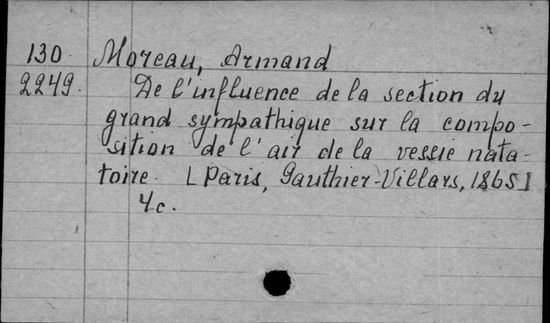 130. Moreau, Armand
2249. De l'influence de la section du
grand sympathique sur la compo-
sition de l'air de la vessie nata-
toire. [Paris, Gauthier-Villars, 1865]
4c.